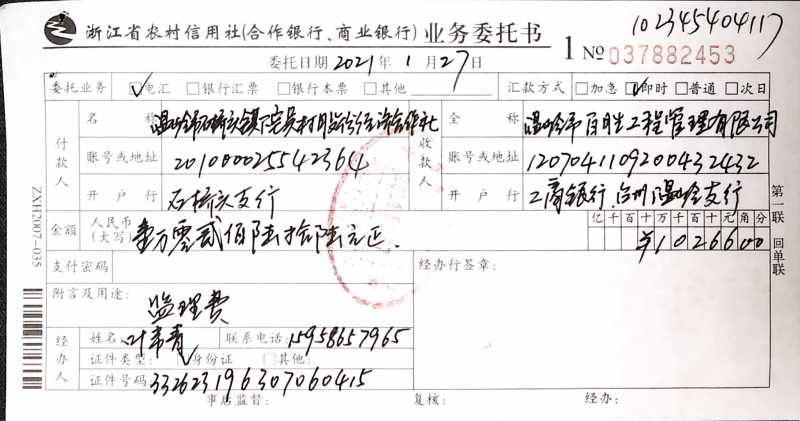 102345404117
浙江省农村信用社(合作银行、商业银行) 业务委托书 1 № 037882453
委托日期 2021年 1月27日
委托业务 ☑电汇 □银行汇票 □银行本票 □其他 汇款方式 □加急 ☑即时 □普通 □次日
付款人 名称 温岭市石桥头镇 村股份经济合作社
账号或地址 201000025542364
开户行 石桥头支行
收款人 全称 温岭市 工程管理有限公司
账号或地址 1207041109200432432
开户行 工商银行台州温岭支行
金额 人民币(大写) 壹万零贰佰陆拾陆元正
亿千百十万千百十元角分
¥1026600
支付密码
经办行签章:
附言及用途:
监理费
经办人 姓名 叶 青 联系电话:15958657965
证件类型: ☑身份证 □其他:
证件号码 332623196307060415
事后监督: 复核: 经办:
第一联 回单联
ZXH2007-035